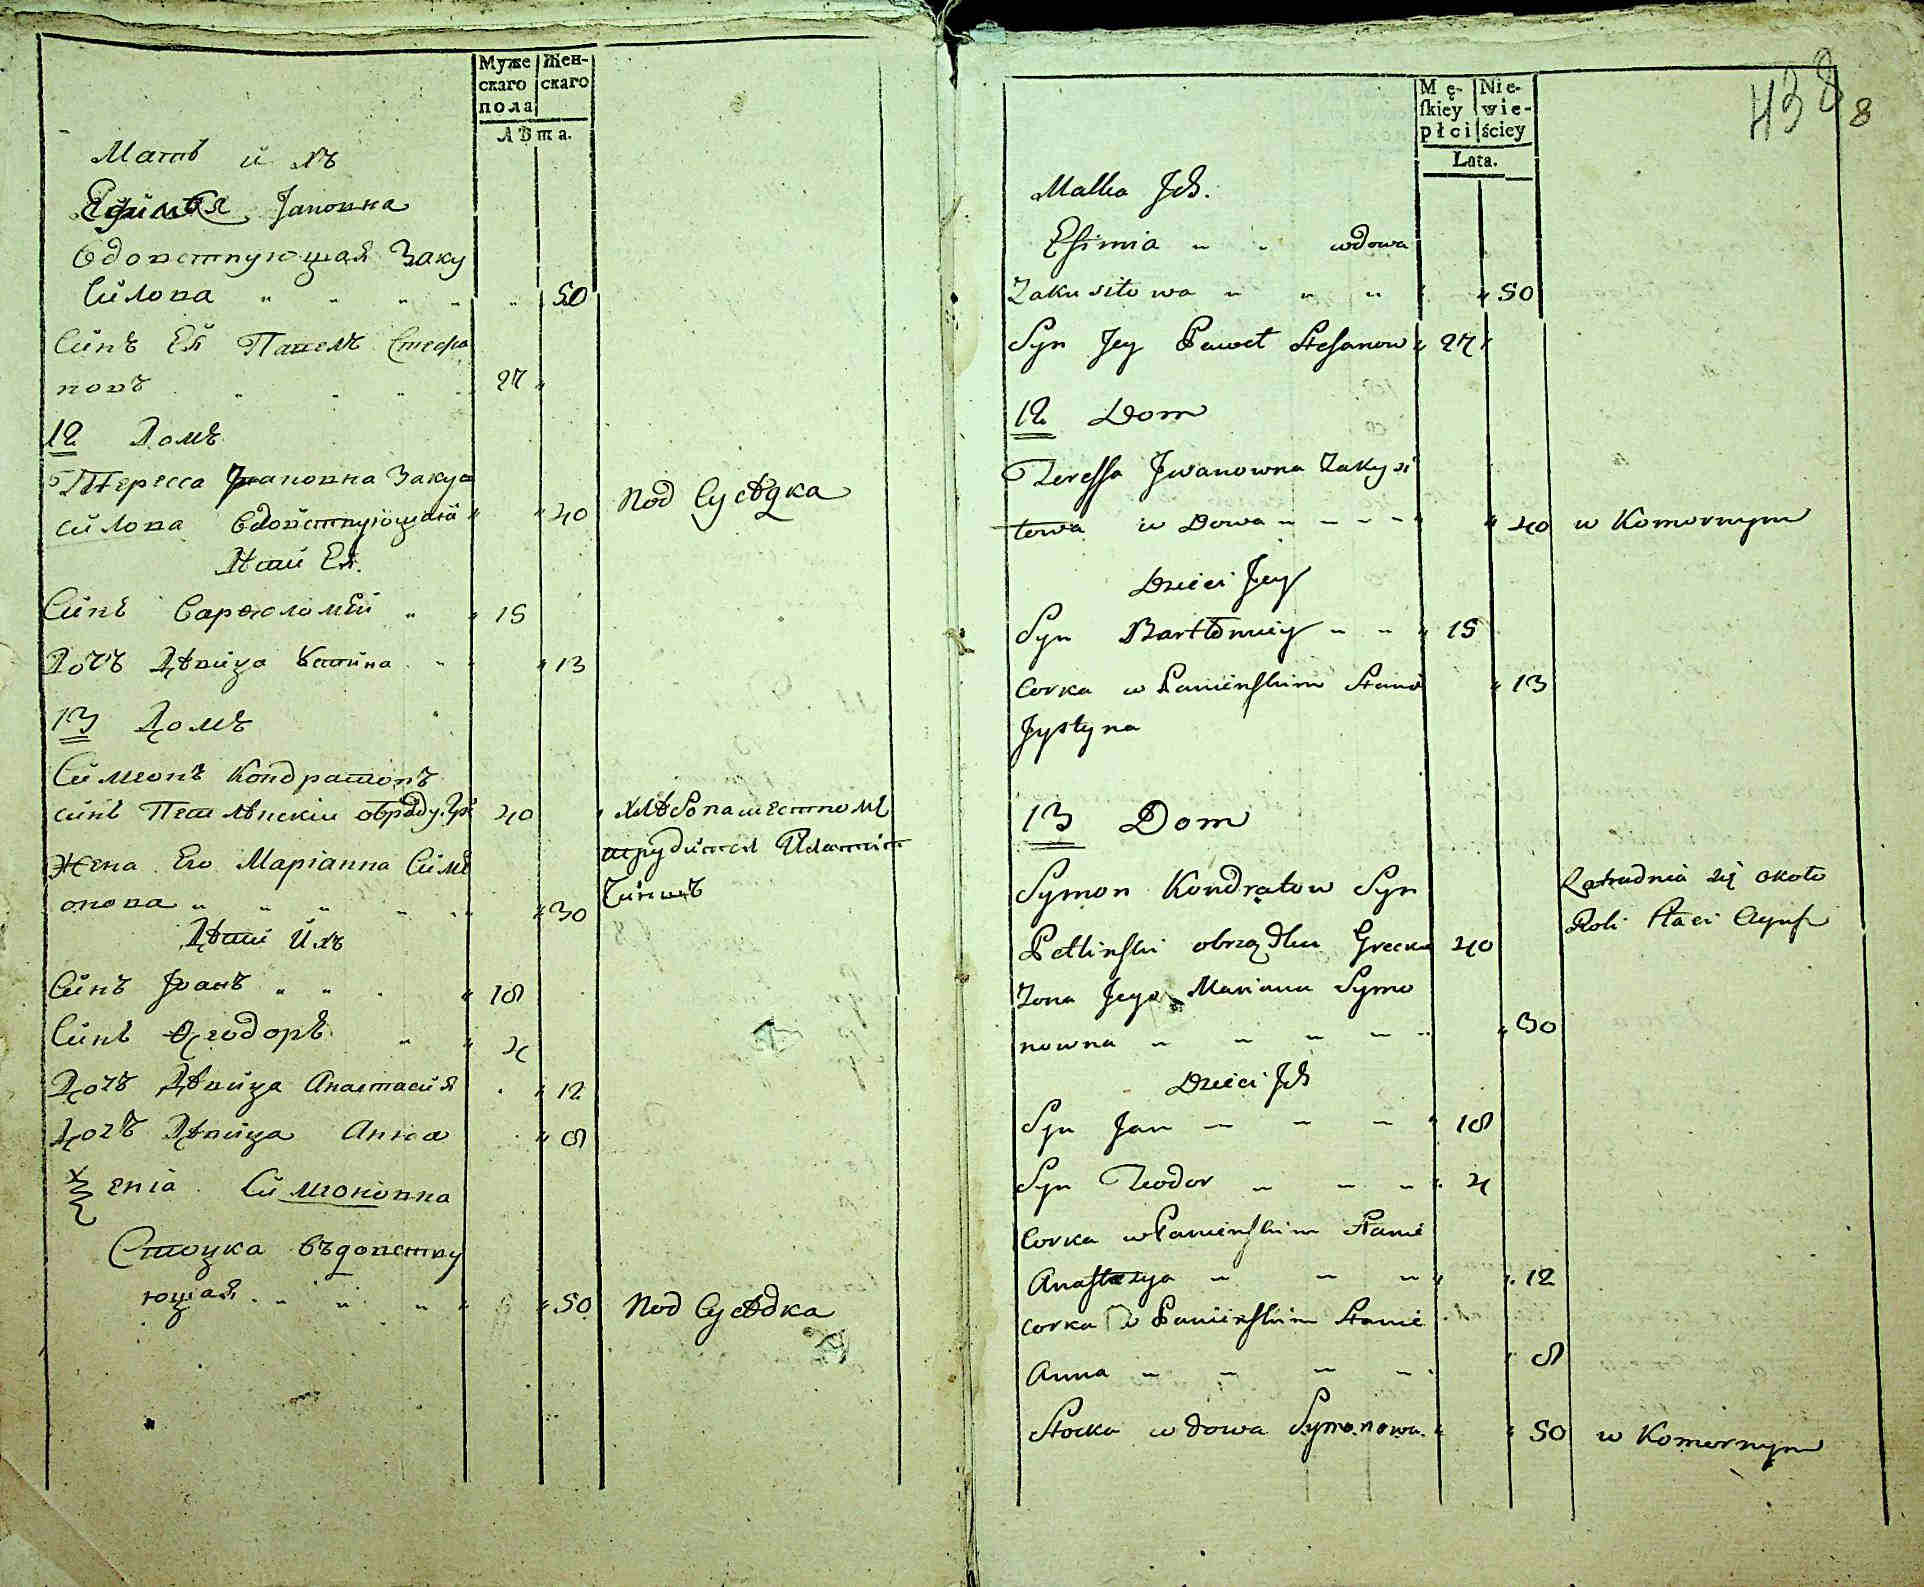 Муже Жен-
скаго скаго
пола
Лѣта.
Мать ихъ
Ефимія Јановна
вдовствующая Заку
силова 50
Синъ Ея Павелъ Стефа
новъ 27
12 Домъ
Тересса Јвановна Закуа
силова вдовствующая 40 Под Сусѣдка
Дѣти Ея.
Синъ Варѳоломѣй 15
Дочъ Дѣвица 13
13 Домъ
Симеонъ Кондратовъ
синъ Петлѣнскій обряду Гр 40 хлѣбопашествомъ
трудится Платитъ
Жена Его Маріанна Симе
онова 30 Чиншъ
Дѣти Ихъ
Синъ Јванъ 18
Синъ Ѳеодоръ 4
Дочъ Дѣвица Анастасия 12
Дочъ Дѣвица Анна 8
Ѯенія Симеоновна
Стоцка въдовству
ющая 50 Под Сусѣдка
438 8
Mę- Nie-
skiey wie-
płci ściey
Lata.
Matka Jch.
Efimia wdowa
Zakusiłowa 50
Syn Jey Paweł Stefanow 27
12 Dom
Teressa Jwanowna Zakysi
łowa w Dowa 40 w Komornym
Dzieci Jey
Syn Bartłomiey 15
Corka w Panieńskim Stanie 13
Jystyna
13 Dom
Symon Kondratow Syn Zatrudnia się około
Roli Płaci Czynsz
Petlinski obrządku Grecko 40
Zona Jego Marianna Symo
nowna 30
Dzieci Jch
Syn Jan 18
Syn Teodor 4
Corka w Panieńskim Stanie
Anastazya 12
corka w Panieńskim Stanie
Anna 8
Stocka wdowa Symonowa 50 w Komornym